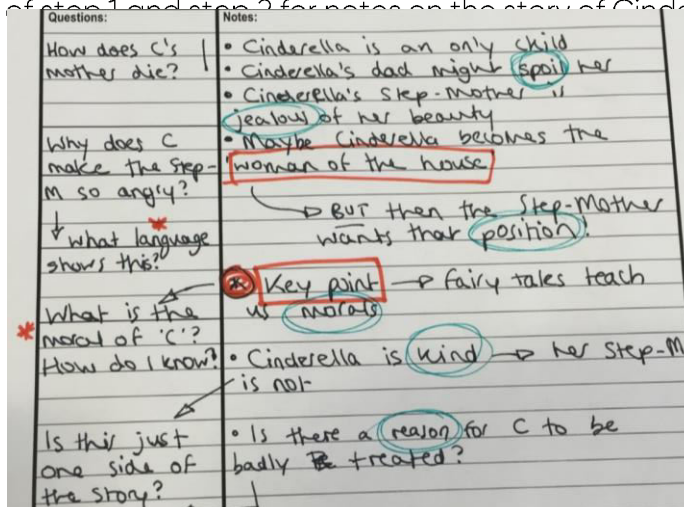 of step 1 and step 2 for notes on the story of Cinde
Questions:
How does C's
mother die?
Why does C
make the step-
M so angry?
What language
shows this?
What is the
moral of 'C'?
How do I know?
Is this just
one side of
the story?
Notes:
• Cinderella is an only child
• Cinderella's dad might spoil her
• Cinderella's Step-Mother is
jealous of her beauty
• Maybe Cinderella becomes the
'woman of the house'
BUT then the Step-Mother
wants that position!
* Key point → fairy tales teach
us morals
• Cinderella is kind → her Step-M
is not
• Is there a reason for C to be
badly treated?